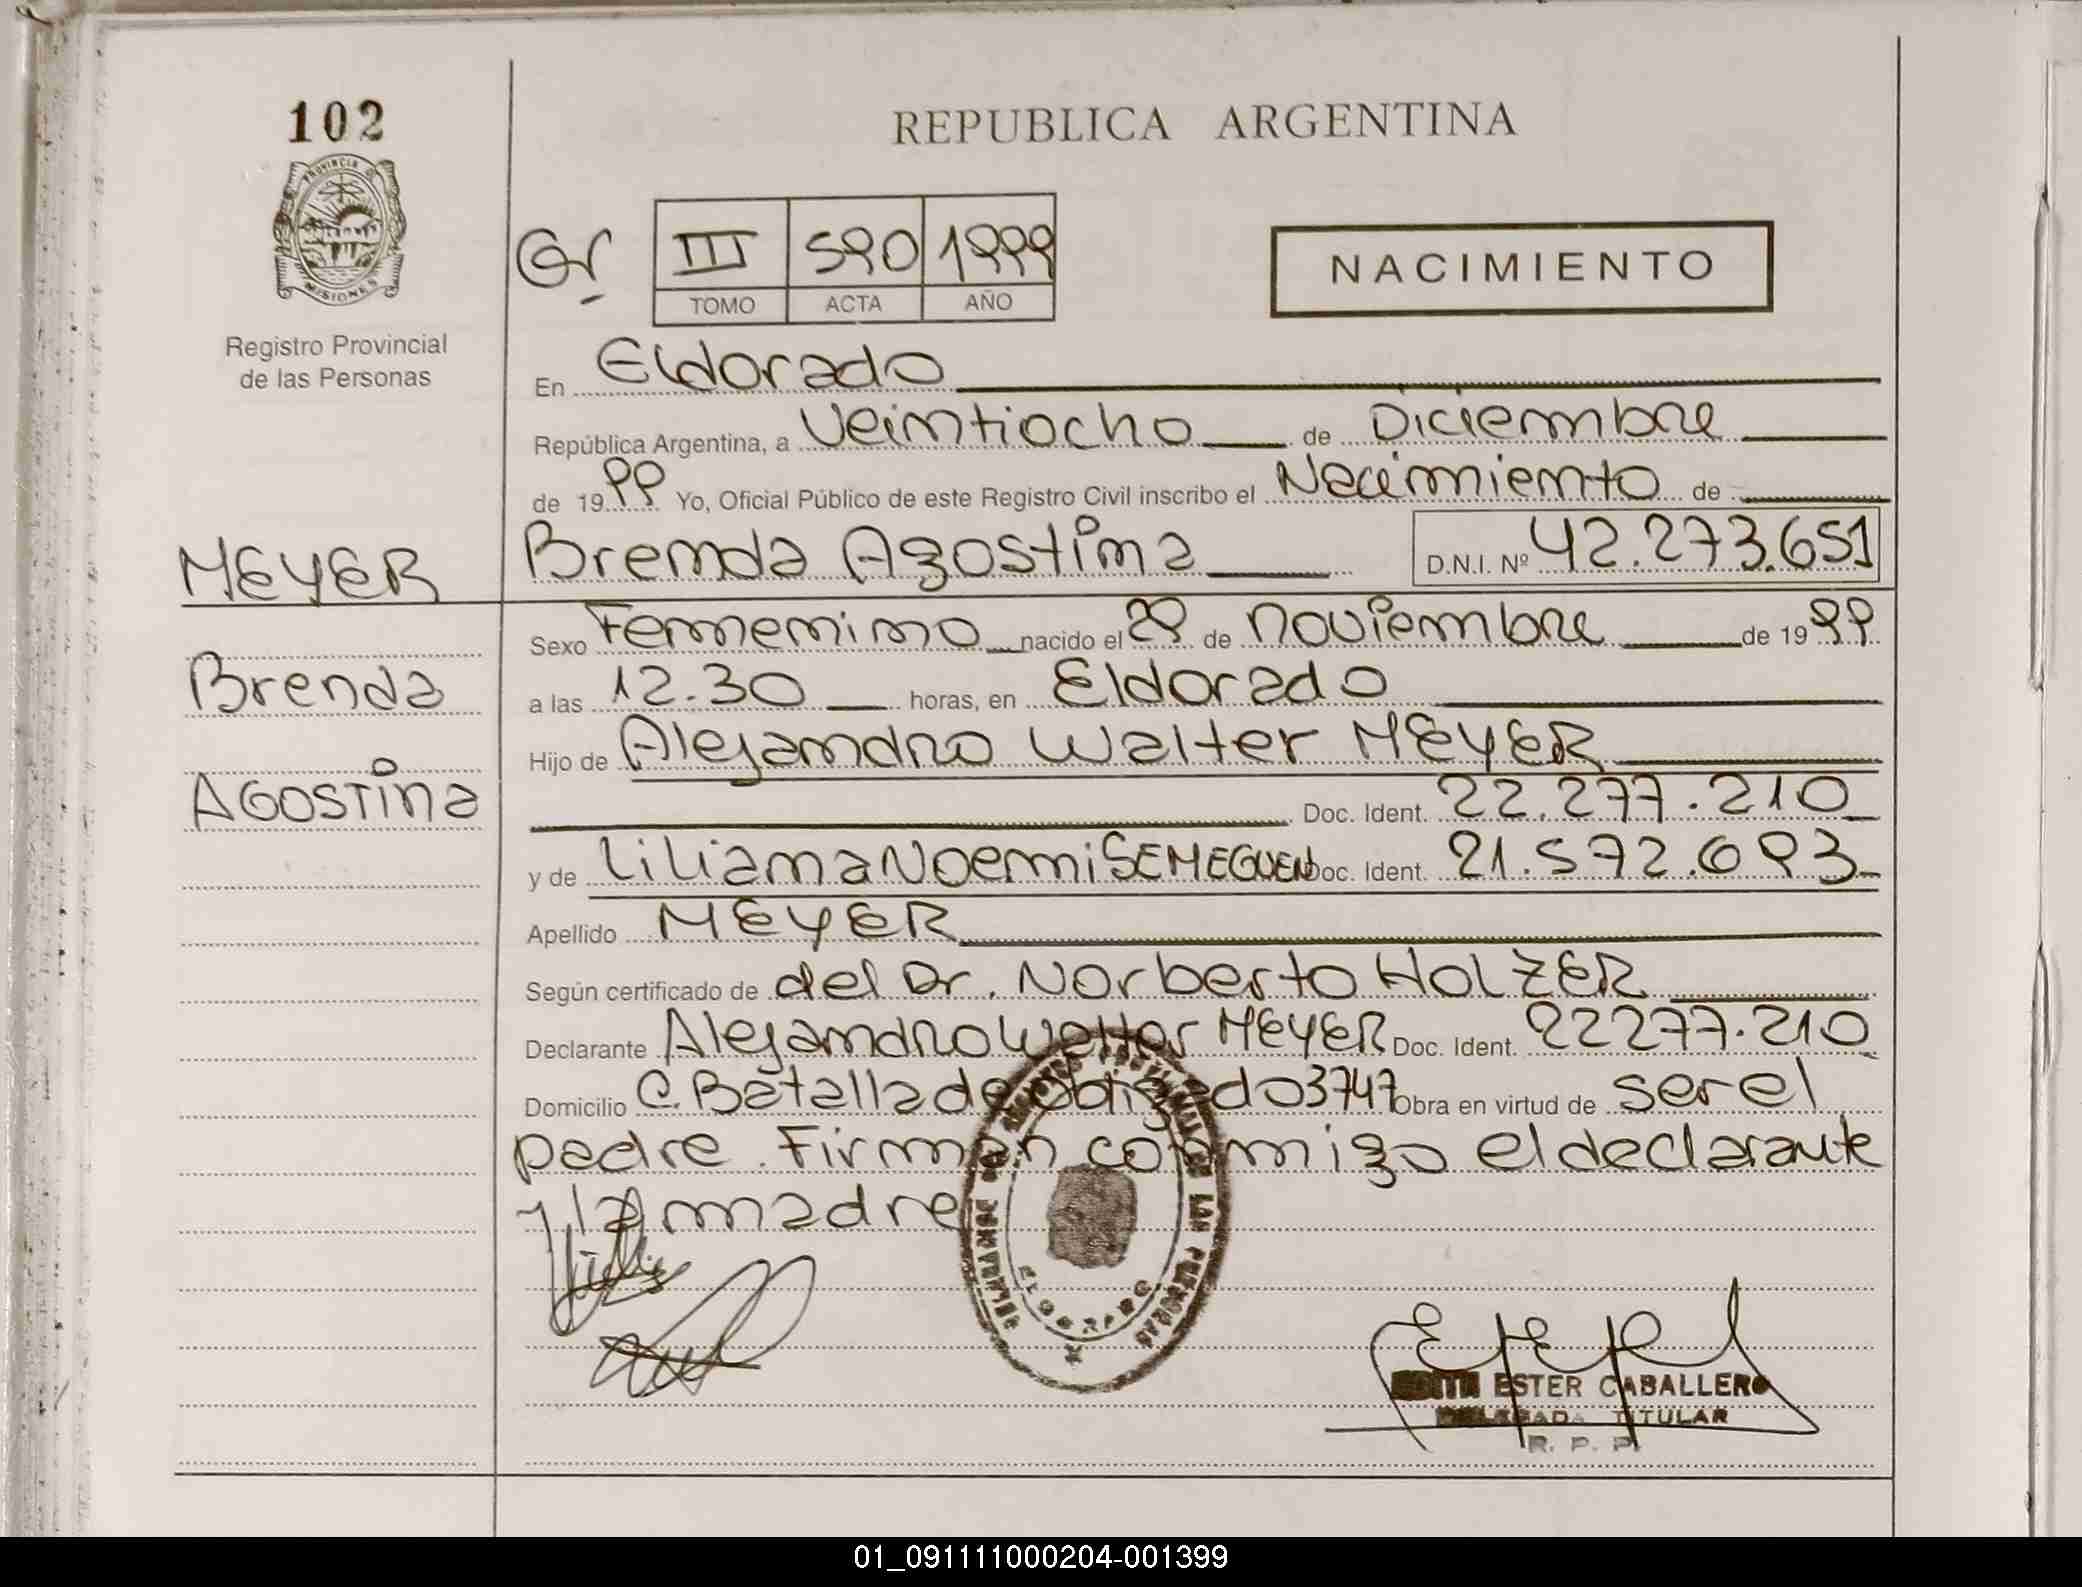 102
REPUBLICA ARGENTINA
PROVINCIA DE
MISIONES
Gr
III 590 1999
TOMO ACTA AÑO
NACIMIENTO
Registro Provincial
de las Personas
En Eldorado
República Argentina, a Veintiocho de Diciembre
de 1999 Yo, Oficial Público de este Registro Civil inscribo el Nacimiento de
MEYER
Brenda Agostina D.N.I. Nº 42.273.651
Sexo Femenino nacido el 29 de noviembre de 1999
Brenda
a las 12.30 horas, en Eldorado
Hijo de Alejandro Walter MEYER
AGOSTina
Doc. Ident. 22.277.210
y de Liliana Noemi SEMEGUEN Doc. Ident. 21.572.693
Apellido MEYER
Según certificado de del Dr. Norberto HOLZER
Declarante Alejandro Walter MEYER Doc. Ident. 22277.210
Domicilio C. Batalla de Obligado 3747 Obra en virtud de ser el
padre. Firman conmigo el declarante
y la madre
ELDORADO
ESTER CABALLERO
DELEGADA TITULAR
R. P. P.
01_091111000204-001399